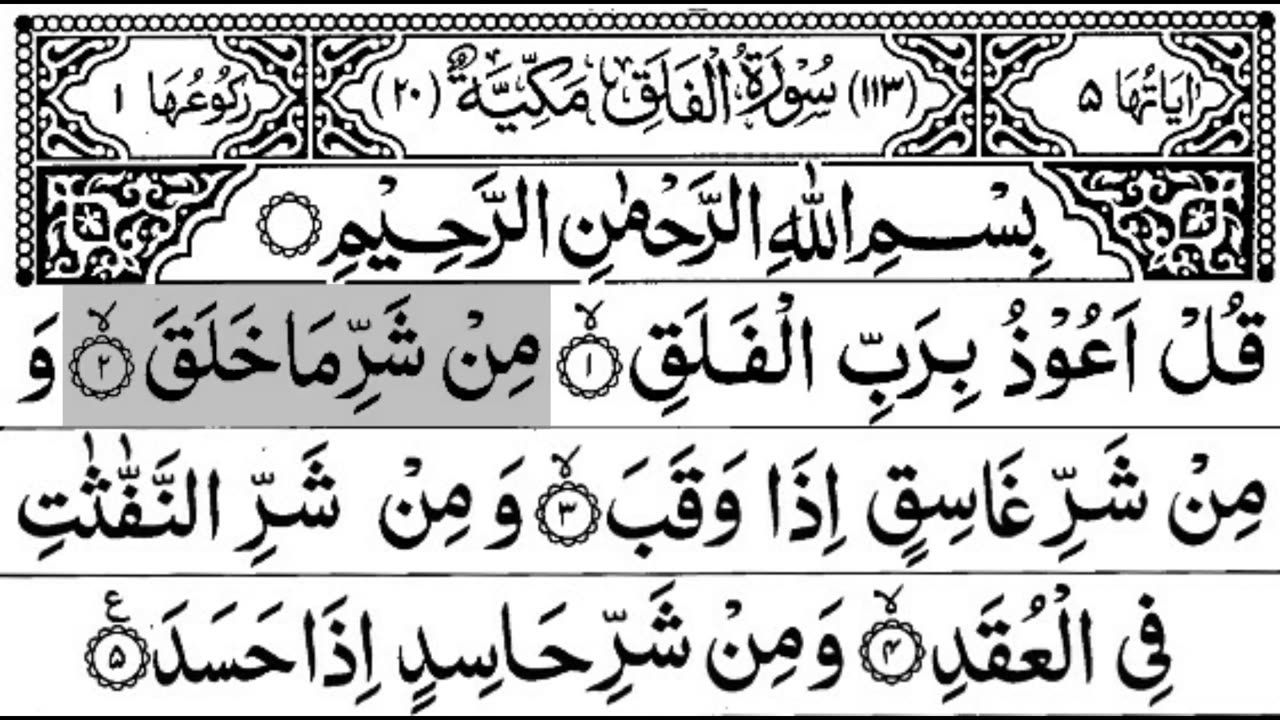 اٰيَاتُهَا ۵ (۱۱۳) سُوْرَةُ الْفَلَقِ مَكِّيَّةٌ (۲۰) رَكُوْعُهَا ۱
بِسْمِ اللّٰهِ الرَّحْمٰنِ الرَّحِيْمِ
قُلْ اَعُوْذُ بِرَبِّ الْفَلَقِ ۙ﴿۱﴾ مِنْ شَرِّ مَا خَلَقَ ۙ﴿۲﴾ وَ
مِنْ شَرِّ غَاسِقٍ اِذَا وَقَبَ ۙ﴿۳﴾ وَ مِنْ شَرِّ النَّفّٰثٰتِ
فِي الْعُقَدِ ۙ﴿۴﴾ وَ مِنْ شَرِّ حَاسِدٍ اِذَا حَسَدَ ﴿۵﴾ ع